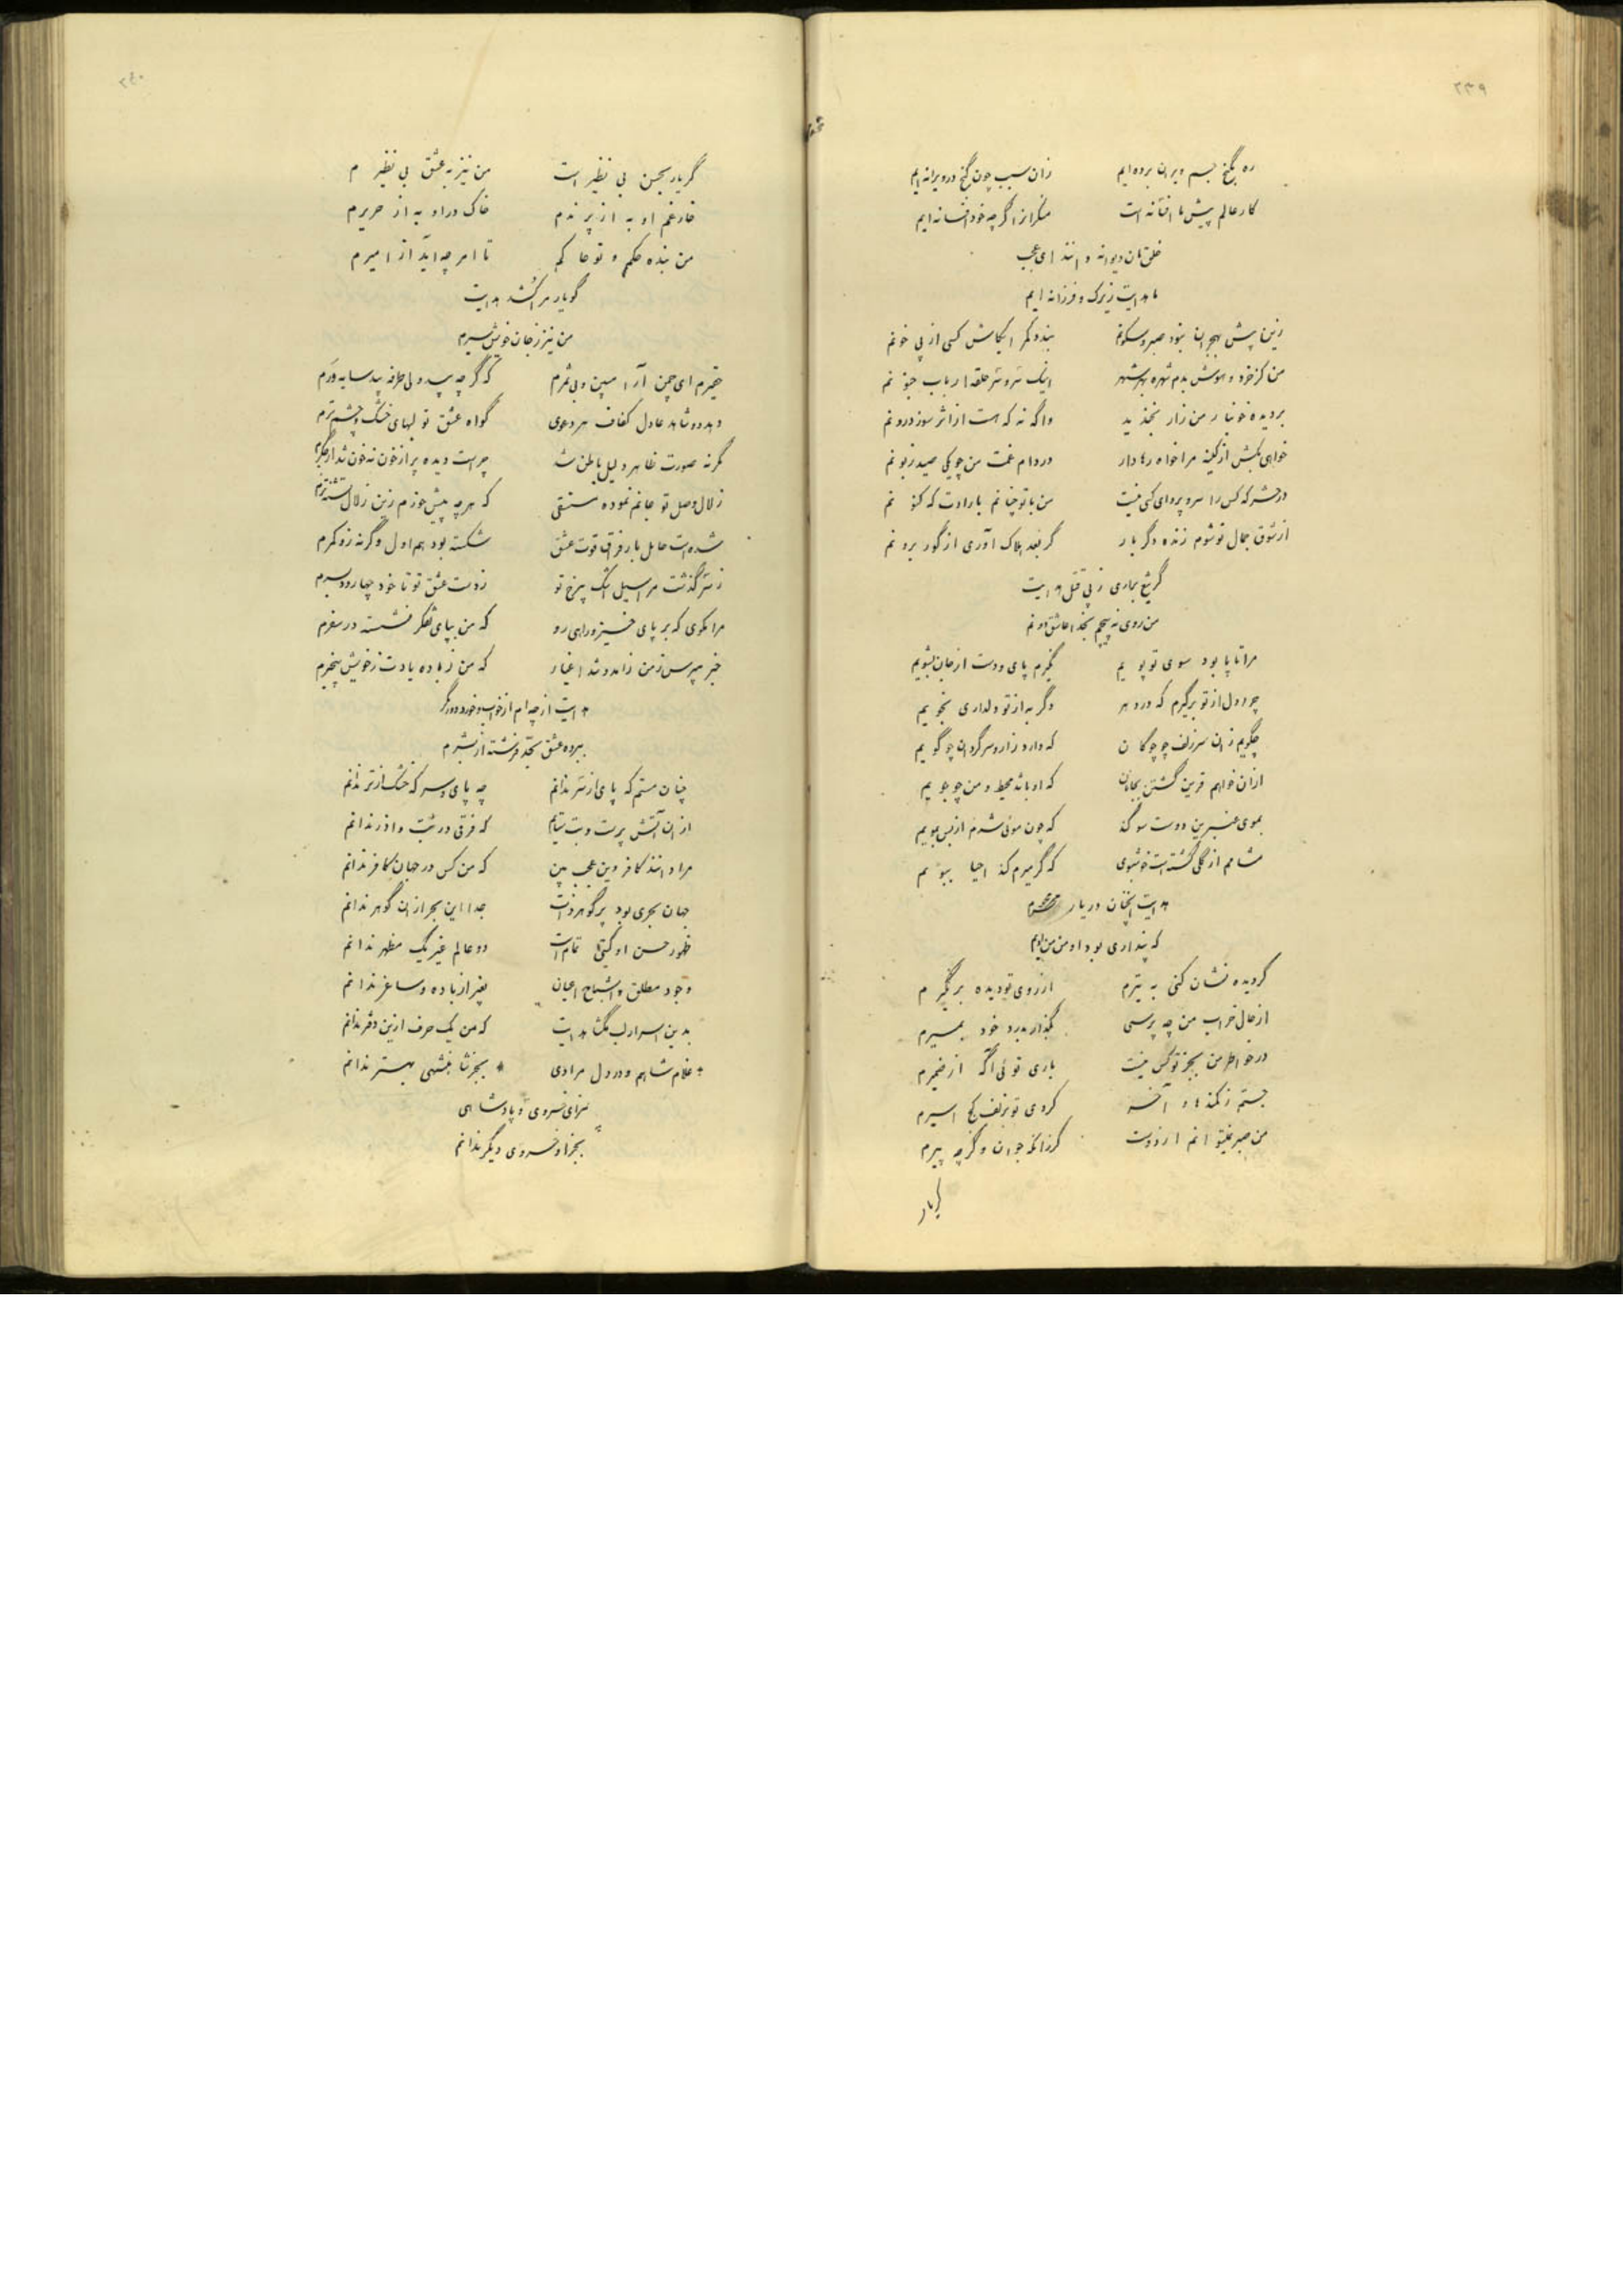 ره بگنج جسم ویران برده‌ایم زان سبب چون گنج در ویرانه‌ایم
کار عالم پیش ما افسانه است منکر از اگرچه خود افسانه‌ایم
خلق مان دیوانه دانند ای عجب
ما هدایت زیرک و فرزانه‌ایم
زین پیش بهجران نبود صبر و سکونم بندد کمر ایکاش کسی از پی خونم
من کز خرد و هوش بدم شهره بهر شهر اینک سر و سر حلقه ارباب جنونم
بر دیده خونبار من زار نخندید واگه نه که هست از اثر سوز درونم
خواهی بکش از کینه مرا خواه رها دار در دام غمت من چو یکی صید زبونم
در حشر که کس را سر و پروای کسی نیست من با تو چنانم بارادت که کنونم
از شوق جمال تو شوم زنده دگر بار گر بعد هلاک آوری از گور برونم
گر تیغ بباری ز پی قتل هدایت
من روی نه پیچم بخدا عاشق اونم
مرا تا پا بود سوی تو پویم نگیرم پای و دست از جان بشویم
چرا دل از تو برگیرم که در دهر دگر به از تو دلداری نجویم
چگویم زان سر زلف چو چوگان که دارد زار و سرگردان چو گویم
از ان خواهم قرین گشتن بجانان که او باشد محیط و من چو جویم
بموی عنبرین دوست سوگند که چون موئی شدم از بس بمویم
مشامم از گلی گشته است خوشبوی که گر میرم کند احیا ببویم
هدایت آنچنان در یار
که پنداری بود او من من اویم
گر دیده نشان کنی به تیرم از روی تو دیده بر نگیرم
از حال خراب من چه پرسی بگذار بدرد خود بمیرم
در خواطر من بجز تو کس نیست باری توئی آگه از ضمیرم
جستم ز کمندها و آخر کردی تو بزلف کج اسیرم
من صبر نمیتوانم از دوست گر زانکه جوان و گر چه پیرم
گر یار
گر یار بحسن بی نظیر است من نیز به عشق بی نظیرم
خار غم او به از پرندم خاک در او به از حریرم
من بنده حکم و تو حاکم تا امر چه آید از امیرم
گو یار مرا کشد هدایت
من نیز ز جان خویش سیرم
حقیرم ای چمن آرا مبین و بی ثمرم که گر چه بید ولی طرفه بید سایه ورم
دهد دو شاهد عادل کفاف هر دعوی گواه عشق تو لبهای خشک و چشم ترم
گر نه صورت ظاهر دلیل باطن شد چراست دیده پر از خون نه خون شد ار جگرم
زلال وصل تو جانم نموده مستسقی که هر چه بیش خورم زین زلال تشنه ترم
شده است حامل بار فراق قوت عشق شکسته بود هم اول وگرنه زو کمرم
ز سر گذشت مرا سیل اشک بیرخ تو ز دست عشق تو تا خود چها رود بسرم
مرا مگوی که بر پای خیز و راهی رو که من بپای تفکر نشسته در سفرم
خبر مپرس ز من زاهد و شد اغیار که من ز باده یادت ز خویش بیخبرم
هدایت ار چه ام از خواب و خورد دور مگر
ببرده عشق بحد فرشته از بشرم
چنان مستم که پای از سر ندانم چه پای و سر که خشک از تر ندانم
از ان آتش پرست و بت ستایم که فرقی در بت و آذر ندانم
مرا دانند کافر وین عجب بین که من کس در جهان کافر ندانم
جهان بحری بود پر گوهر ذات جدا این بحر از ان گوهر ندانم
ظهور حسن او گیتی تمام است دو عالم غیر یک مظهر ندانم
وجود مطلق و اشباح اعیان بغیر از باده و ساغر ندانم
بدین اسرار لب مگشا هدایت که من یک حرف ازین دفتر ندانم
غلام شاهم و در دل مرادی بجز شاهنشهی بهتر ندانم
سزای خسروی و پادشاهی
بجز او خسروی دیگر ندانم